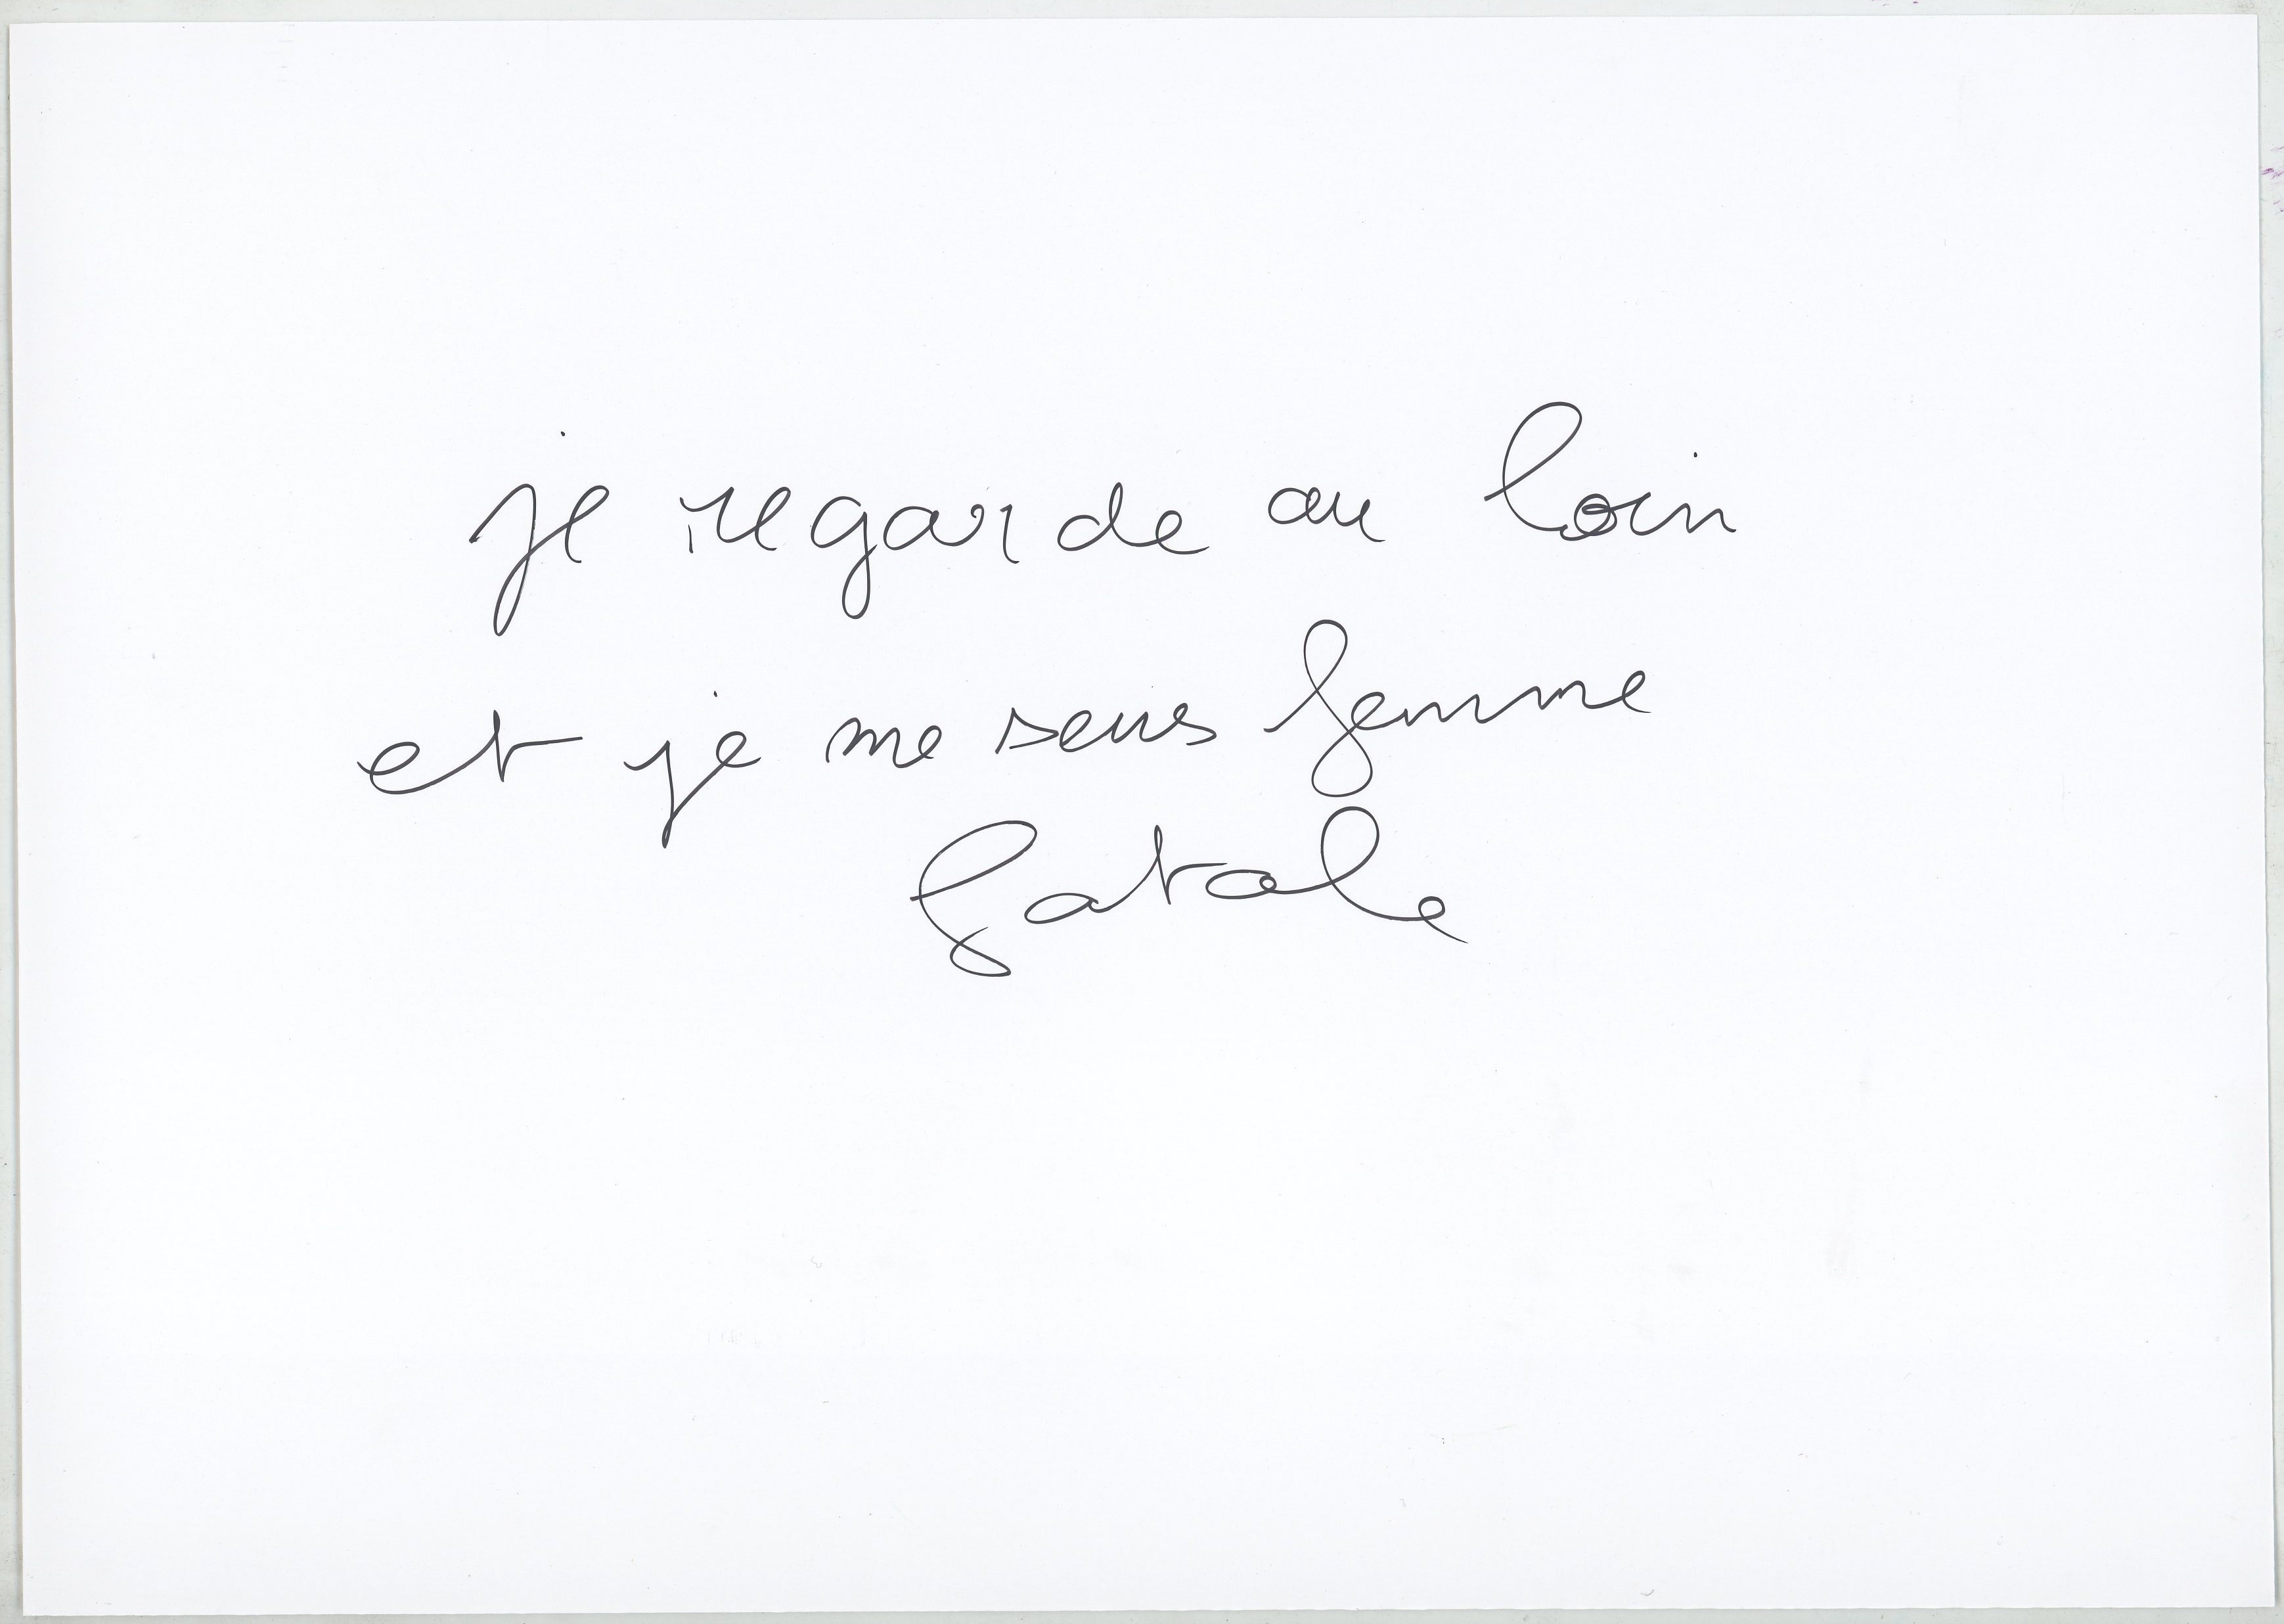 je regarde au loin
et je me sens femme
fatale